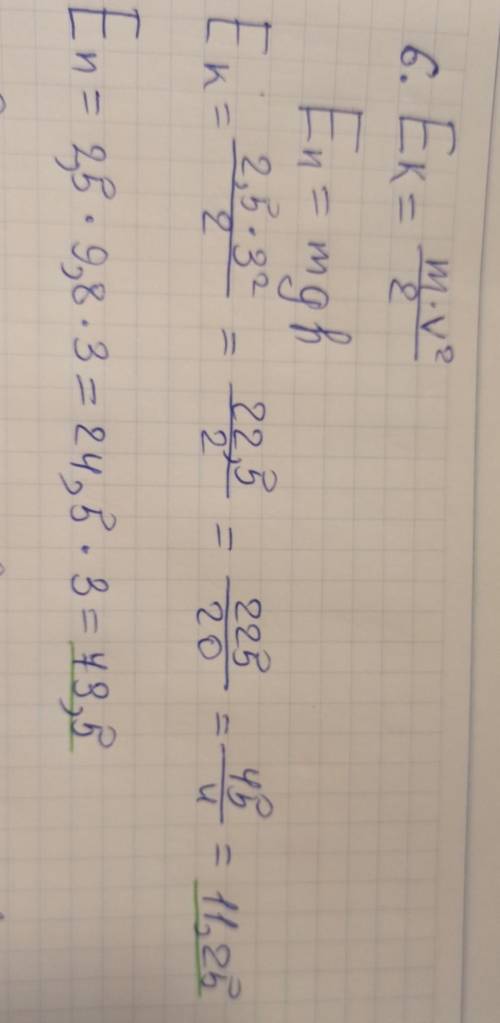 6. Eк = m·v²/2
Eп = mgh
Eк = 2,5·3²/2 = 22,5/2 = 225/20 = 45/4 = 11,25
Eп = 2,5·9,8·3 = 24,5·3 = 73,5